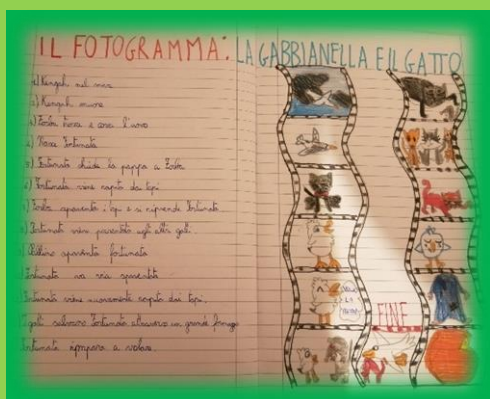 IL FOTOGRAMMA: LA GABBIANELLA E IL GATTO
1) Kengah nel mare
2) Kengah muore
3) Zorba trova e cova l'uovo
4) Nasce Fortunata
5) Fortunata chiede la pappa a Zorba
6) Fortunata viene rapita dai topi
7) Zorba spaventa i topi e si riprende Fortunata
8) Fortunata viene presentata agli altri gatti
Pallino spaventa fortunata
Fortunata va via spaventata
Fortunata viene nuovamente rapita dai topi.
I gatti salvano Fortunata attraverso un grande formaggio
Fortunata impara a volare.
VOGLIO LA PAPPA!
FINE